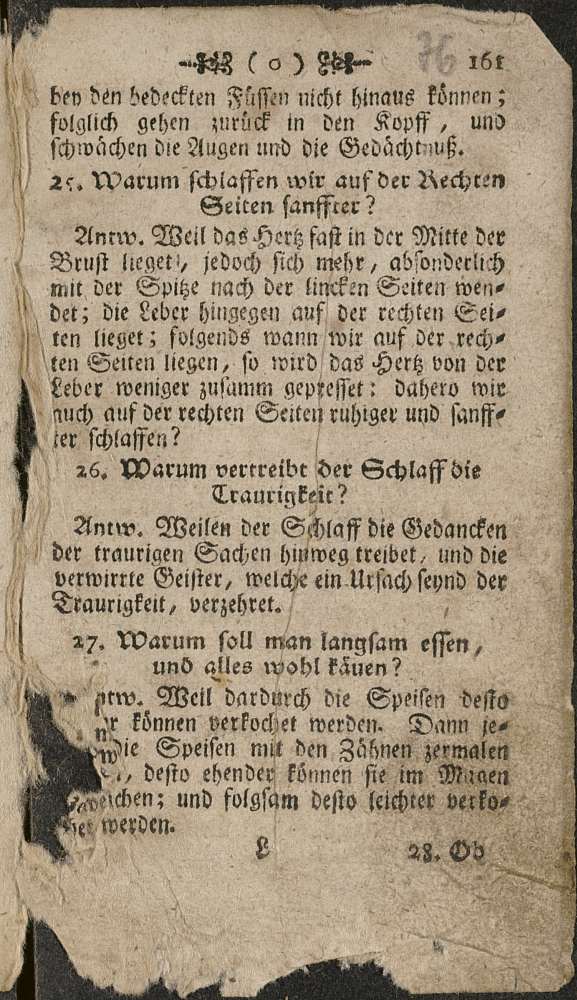 ( o ) 76 161
bey den bedeckten Füssen nicht hinaus können;
folglich gehen zurück in den Kopff, und
schwächen die Augen und die Gedächtnuß.
25. Warum schlaffen wir auf der Rechten
Seiten sanffter?
Antw. Weil das Hertz fast in der Mitte der
Brust lieget, jedoch sich mehr, absonderlich
mit der Spitze nach der lincken Seiten wen-
det; die Leber hingegen auf der rechten Sei-
ten lieget; folgends wann wir auf der rech-
ten Seiten liegen, so wird das Hertz von der
Leber weniger zusamm gepresset: dahero wir
auch auf der rechten Seiten ruhiger und sanff-
ter schlaffen?
26. Warum vertreibt der Schlaff die
Traurigkeit?
Antw. Weilen der Schlaff die Gedancken
der traurigen Sachen hinweg treibet, und die
verwirrte Geister, welche ein Ursach seynd der
Traurigkeit, verzehret.
27. Warum soll man langsam essen,
und alles wohl käuen?
ntw. Weil dardurch die Speisen desto
r können verkochet werden. Dann je-
die Speisen mit den Zähnen zermalen
, desto ehender können sie im Magen
weichen; und folgsam desto leichter verko-
chet werden.
L 28. Ob